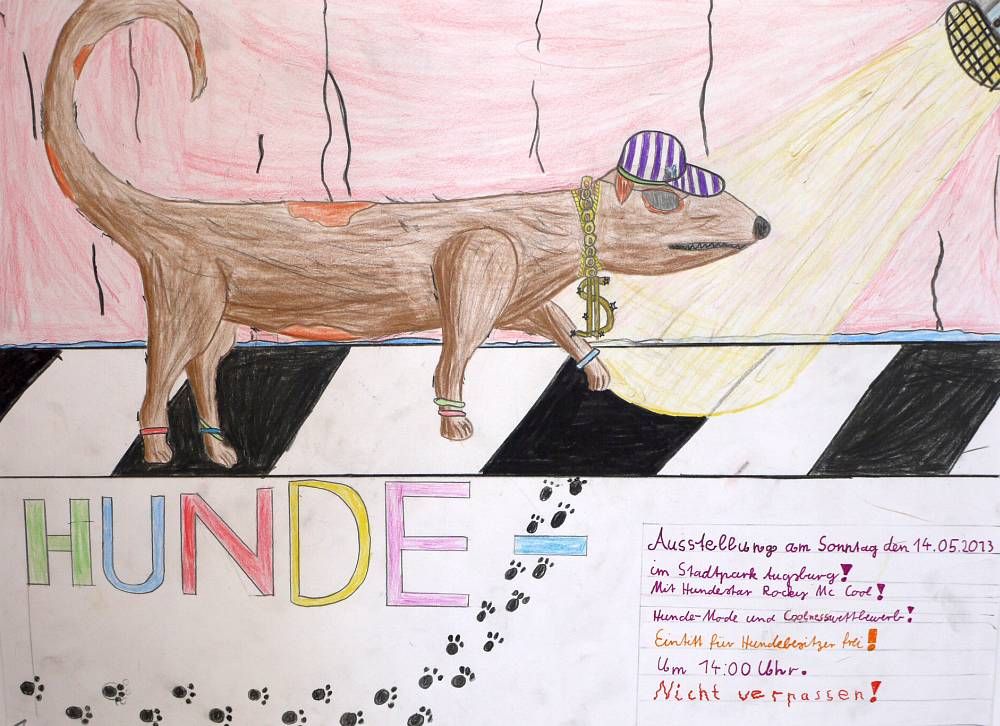 HUNDE-
Ausstellung am Sonntag den 14.05.2013
im Stadtpark Augsburg!
Mit Hundestar Rockey Mc Cool!
Hunde-Mode und Coolnesswettbewerb!
Eintitt für Hundebesitzer frei!
Um 14:00 Uhr.
Nicht verpassen!